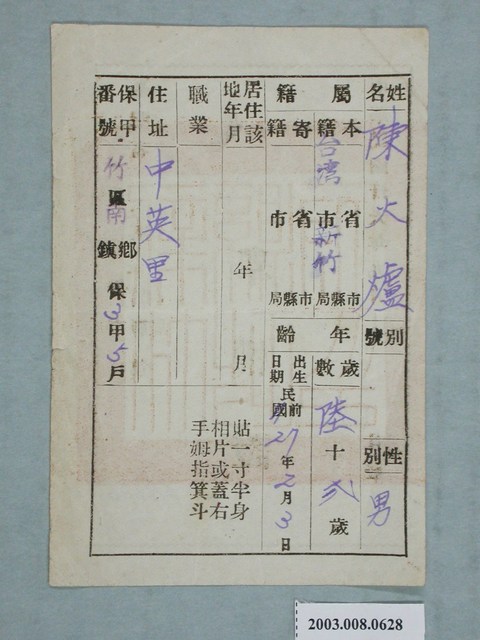 姓名 陳火爐 別號 性別 男
屬籍 本籍 台灣省市 新竹市縣局 年齡 歲數 陸十弍歲
寄籍 省市 市縣局 出生日期 民國前27年2月3日
居住該地年月 年 月
貼一寸半身
相片或蓋右
手姆指箕斗
職業
住址 中英里
保甲番號 竹南區鄉鎮 保3甲5戶
2003.008.0628